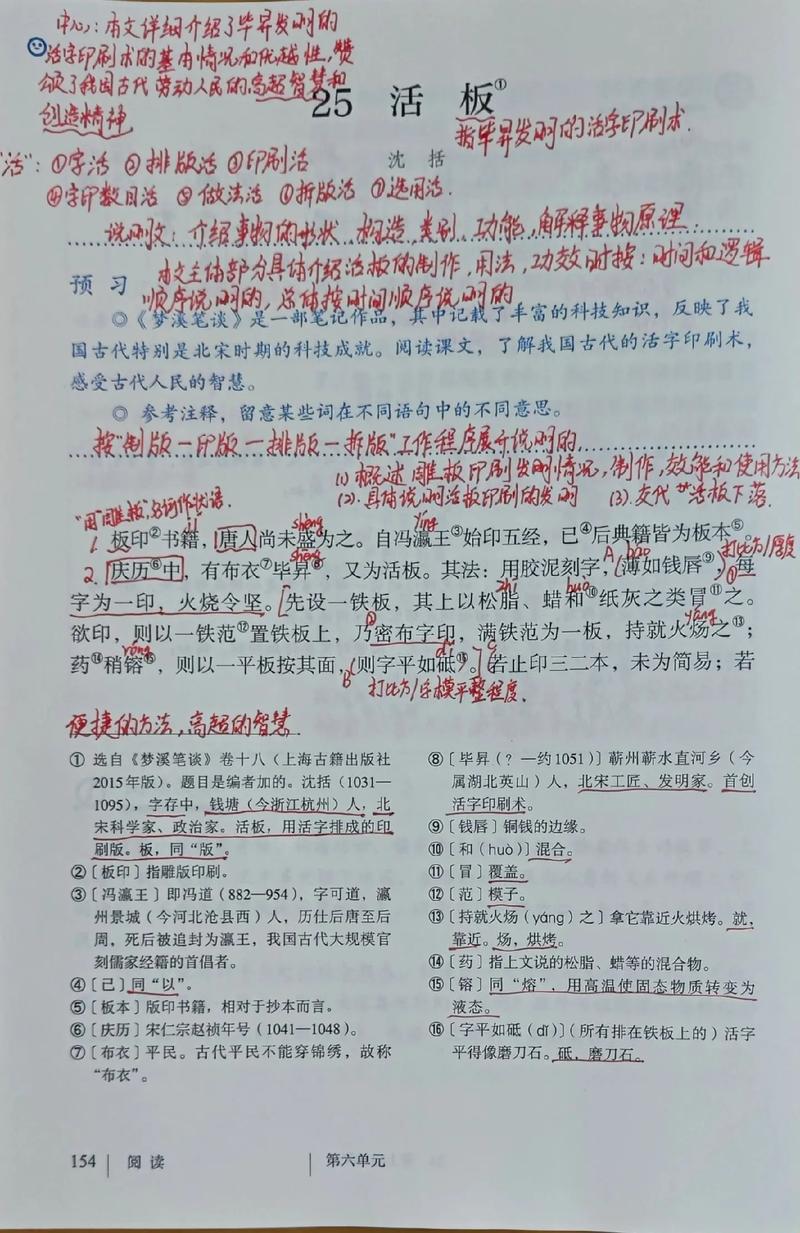 中心:本文详细介绍了毕昇发明的
活字印刷术的基本情况和优越性,赞
颂了我国古代劳动人民的高超智慧和
创造精神
25 活 板①
指毕昇发明的活字印刷术.
沈 括
"活":①字活 ②排版活 ③印刷活
④字印数目活 ⑤做法活 ⑥拆版活 ⑦选用活.
说明文:介绍事物的形状、构造、类别、功能,解释事物原理
预 习
本文主体部分具体介绍活板的制作,用法,功效时按:时间和逻辑
顺序说明的,总体按时间顺序说明的
◎《梦溪笔谈》是一部笔记作品,其中记载了丰富的科技知识,反映了我
国古代特别是北宋时期的科技成就。阅读课文,了解我国古代的活字印刷术,
感受古代人民的智慧。
◎ 参考注释,留意某些词在不同语句中的不同意思。
按"制版—印版—排版—拆版"工作程序展开说明的
(1)概述雕板印刷发明情况,制作,效能和使用方法
(2).具体说明活板印刷的发明 (3).交代"活板下落.
"用雕板"名词作状语.
jí shèng yíng
1. 板印②书籍,唐人尚未盛为之。自冯瀛王③始印五经,已④后典籍皆为板本⑤。
shēng A báo 打比方/厚度
2. 庆历⑥中,有布衣⑦毕昇⑧,又为活板。其法:用胶泥刻字,薄如钱唇⑨,每
①
字为一印,火烧令坚。先设一铁板,其上以松脂、蜡和⑩纸灰之类冒⑪之。
zhī huò yáng
欲印,则以一铁范⑫置铁板上,乃密布字印,满铁范为一板,持就火炀之⑬;
②
róng dǐ
药⑭稍镕⑮,则以一平板按其面,则字平如砥⑯。若止印三二本,未为简易;若
B 打比方/字模平整程度.
便捷的方法,高超的智慧
① 选自《梦溪笔谈》卷十八(上海古籍出版社
2015年版)。题目是编者加的。沈括(1031—
1095),字存中,钱塘(今浙江杭州)人,北
宋科学家、政治家。活板,用活字排成的印
刷版。板,同"版"。
②〔板印〕指雕版印刷。
③〔冯瀛王〕即冯道(882—954),字可道,瀛
州景城(今河北沧县西)人,历仕后唐至后
周,死后被追封为瀛王,我国古代大规模官
刻儒家经籍的首倡者。
④〔已〕同"以"。
⑤〔板本〕版印书籍,相对于抄本而言。
⑥〔庆历〕宋仁宗赵祯年号(1041—1048)。
⑦〔布衣〕平民。古代平民不能穿锦绣,故称
"布衣"。
⑧〔毕昇(?—约1051)〕蕲州蕲水直河乡(今
属湖北英山)人,北宋工匠、发明家。首创
活字印刷术。
⑨〔钱唇〕铜钱的边缘。
⑩〔和(huò)〕混合。
⑪〔冒〕覆盖。
⑫〔范〕模子。
⑬〔持就火炀(yáng)之〕拿它靠近火烘烤。就,
靠近。炀,烘烤。
⑭〔药〕指上文说的松脂、蜡等的混合物。
⑮〔镕〕同"熔",用高温使固态物质转变为
液态。
⑯〔字平如砥(dǐ)〕(所有排在铁板上的)活字
平得像磨刀石。砥,磨刀石。
154 阅读
第六单元